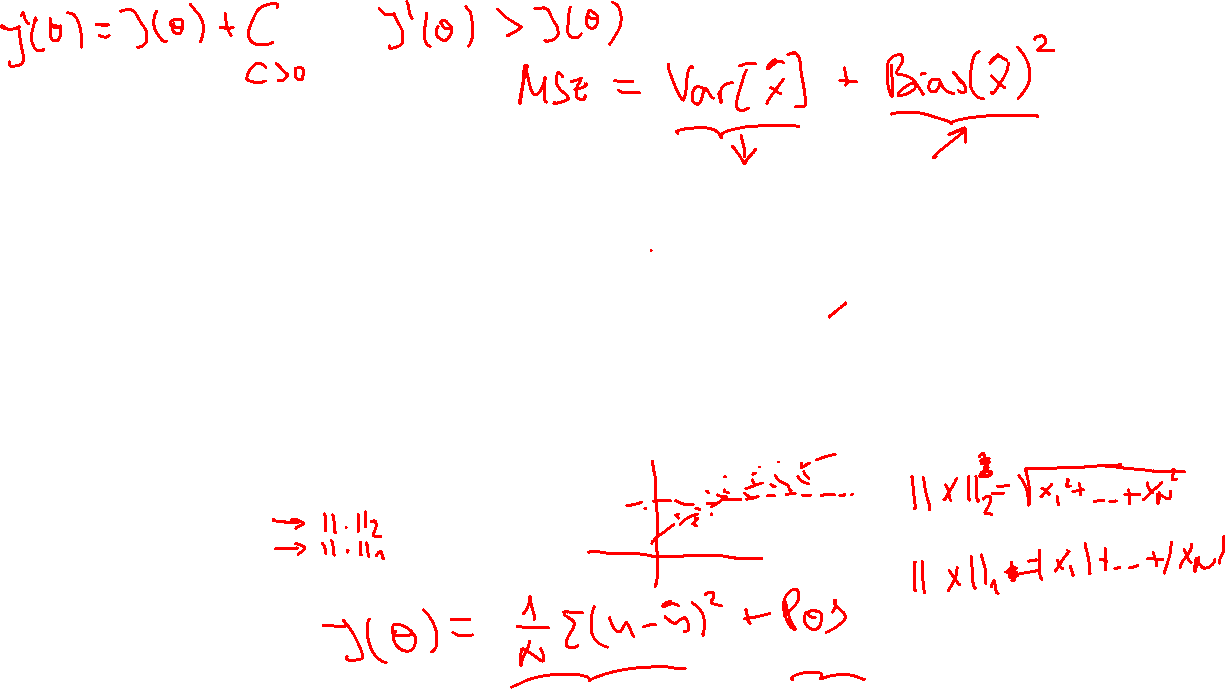 J'(θ) = J(θ) + C    J'(θ) > J(θ)
C>0
MSE = Var[x̂] + Bias(x̂)²
→ ||·||₂
→ ||·||₁
||x||₂² = √(x₁² + ... + x_N²)
||x||₁ = |x₁| + ... + |x_N|
J(θ) = 1/N Σ(y - ŷ)² + Pos